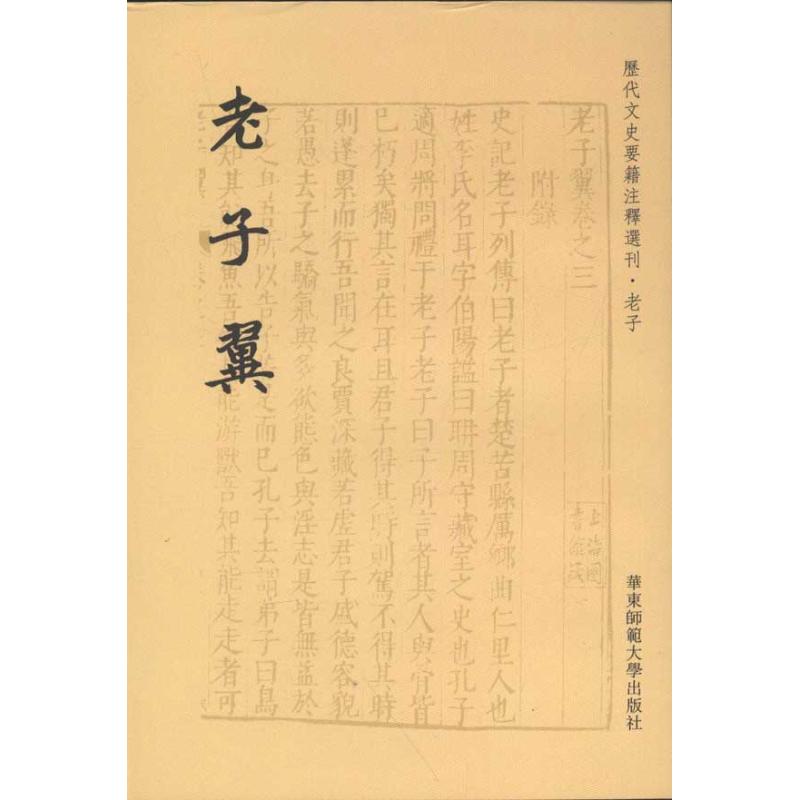 歷代文史要籍注釋選刊·老子
華東師範大學出版社
老子翼
老子翼卷之三
附錄
史記老子列傳曰老子者楚苦縣厲鄉曲仁里人也
姓李氏名耳字伯陽謚曰聃周守藏室之史也孔子
適周將問禮于老子老子曰子所言者其人與骨皆
已朽矣獨其言在耳且君子得其時則駕不得其時
則蓬累而行吾聞之良賈深藏若虛君子盛德容貌
若愚去子之驕氣與多欲態色與淫志是皆無益於
子之身吾所以告子若是而已孔子去謂弟子曰鳥
吾知其能飛魚吾知其能游獸吾知其能走走者可